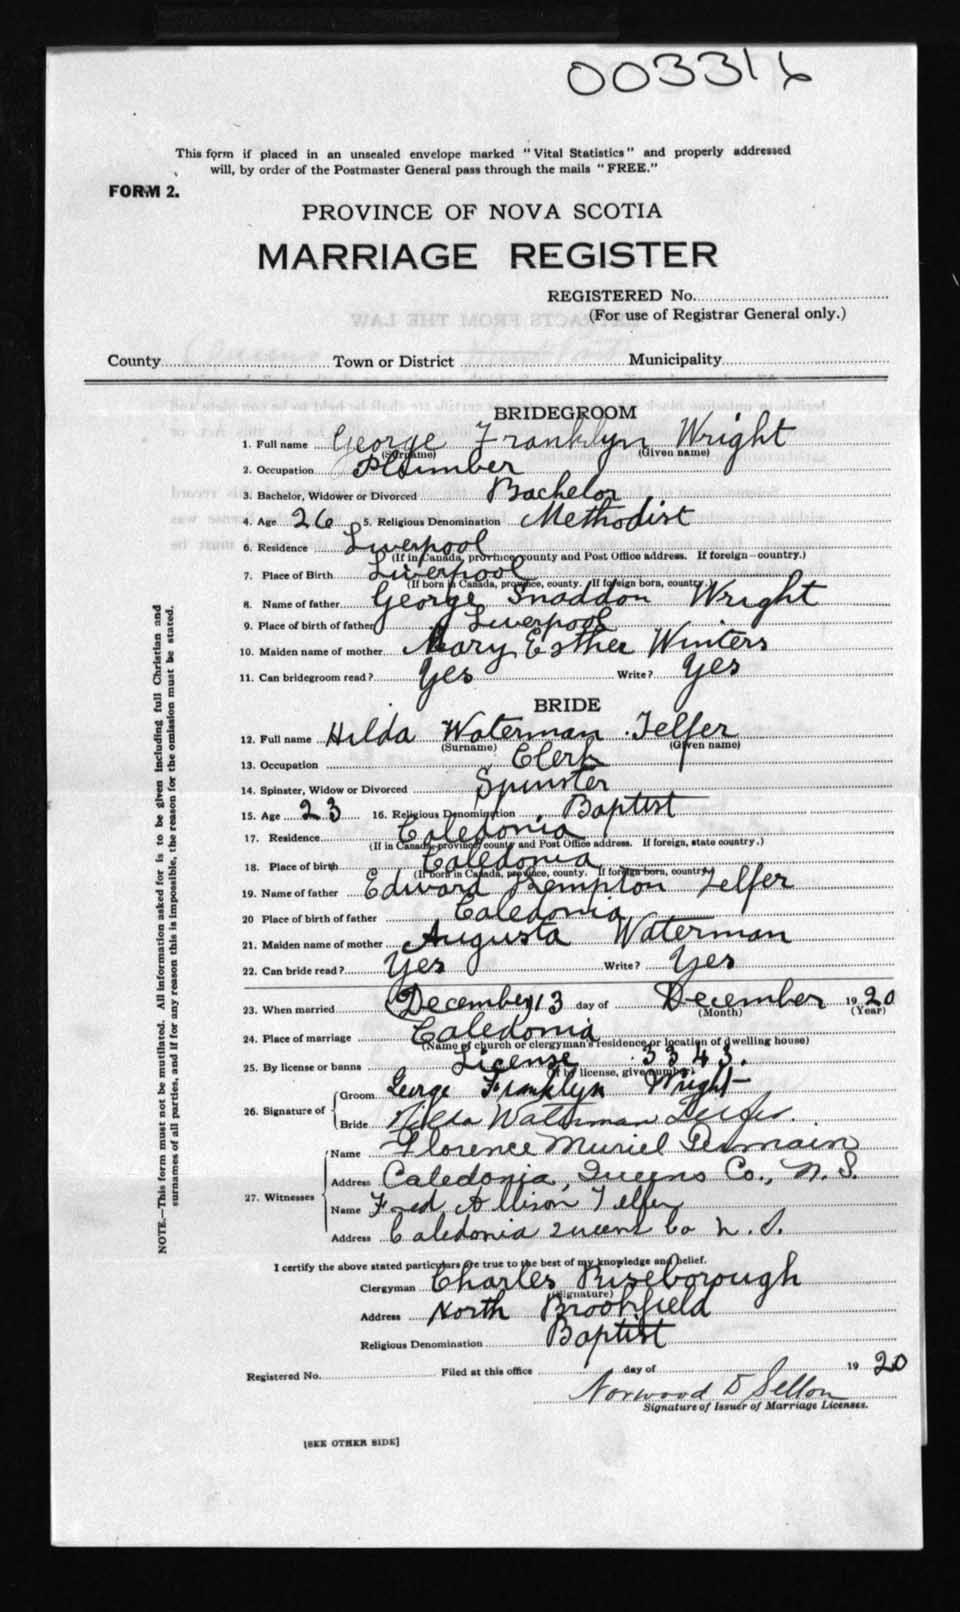 003316
This form if placed in an unsealed envelope marked "Vital Statistics" and properly addressed
will, by order of the Postmaster General pass through the mails "FREE."
FORM 2.
PROVINCE OF NOVA SCOTIA
MARRIAGE REGISTER
REGISTERED No.
(For use of Registrar General only.)
County Town or District Municipality
BRIDEGROOM
1. Full name George Franklyn Wright
(Surname) (Given name)
2. Occupation Plumber
3. Bachelor, Widower or Divorced Bachelor
4. Age 26 5. Religious Denomination Methodist
6. Residence Liverpool
(If in Canada, province, county and Post Office address. If foreign—country.)
7. Place of Birth Liverpool
(If born in Canada, province, county. If foreign born, country.)
8. Name of father George Snaddon Wright
9. Place of birth of father Liverpool
10. Maiden name of mother Mary Esther Winters
11. Can bridegroom read? Yes Write? Yes
BRIDE
12. Full name Hilda Waterman Telfer
(Surname) (Given name)
13. Occupation Clerk
14. Spinster, Widow or Divorced Spinster
15. Age 23 16. Religious Denomination Baptist
17. Residence Caledonia
(If in Canada, province, county and Post Office address. If foreign, state country.)
18. Place of birth Caledonia
(If born in Canada, province, county. If foreign born, country)
19. Name of father Edward Kempton Telfer
20 Place of birth of father Caledonia
21. Maiden name of mother Augusta Waterman
22. Can bride read? Yes Write? Yes
23. When married (December) 13 day of December 1920
(Month) (Year)
24. Place of marriage Caledonia
(Name of church or clergyman's residence or location of dwelling house)
25. By license or banns License 3343.
(If by license, give number)
26. Signature of Groom George Franklyn Wright
Bride Hilda Waterman Telfer.
27. Witnesses Name Florence Muriel
Address Caledonia, Queens Co., N. S.
Name Fred Allison Telfer
Address Caledonia Queens Co N. S.
I certify the above stated particulars are true to the best of my knowledge and belief.
Clergyman Charles Riseborough
(Signature)
Address North Brookfield
Religious Denomination Baptist
Registered No. Filed at this office day of 1920
Norwood
Signature of Issuer of Marriage Licenses.
[SEE OTHER SIDE]
NOTE.—This form must not be mutilated. All information asked for is to be given including full Christian and
surnames of all parties, and if for any reason this is impossible, the reason for the omission must be stated.